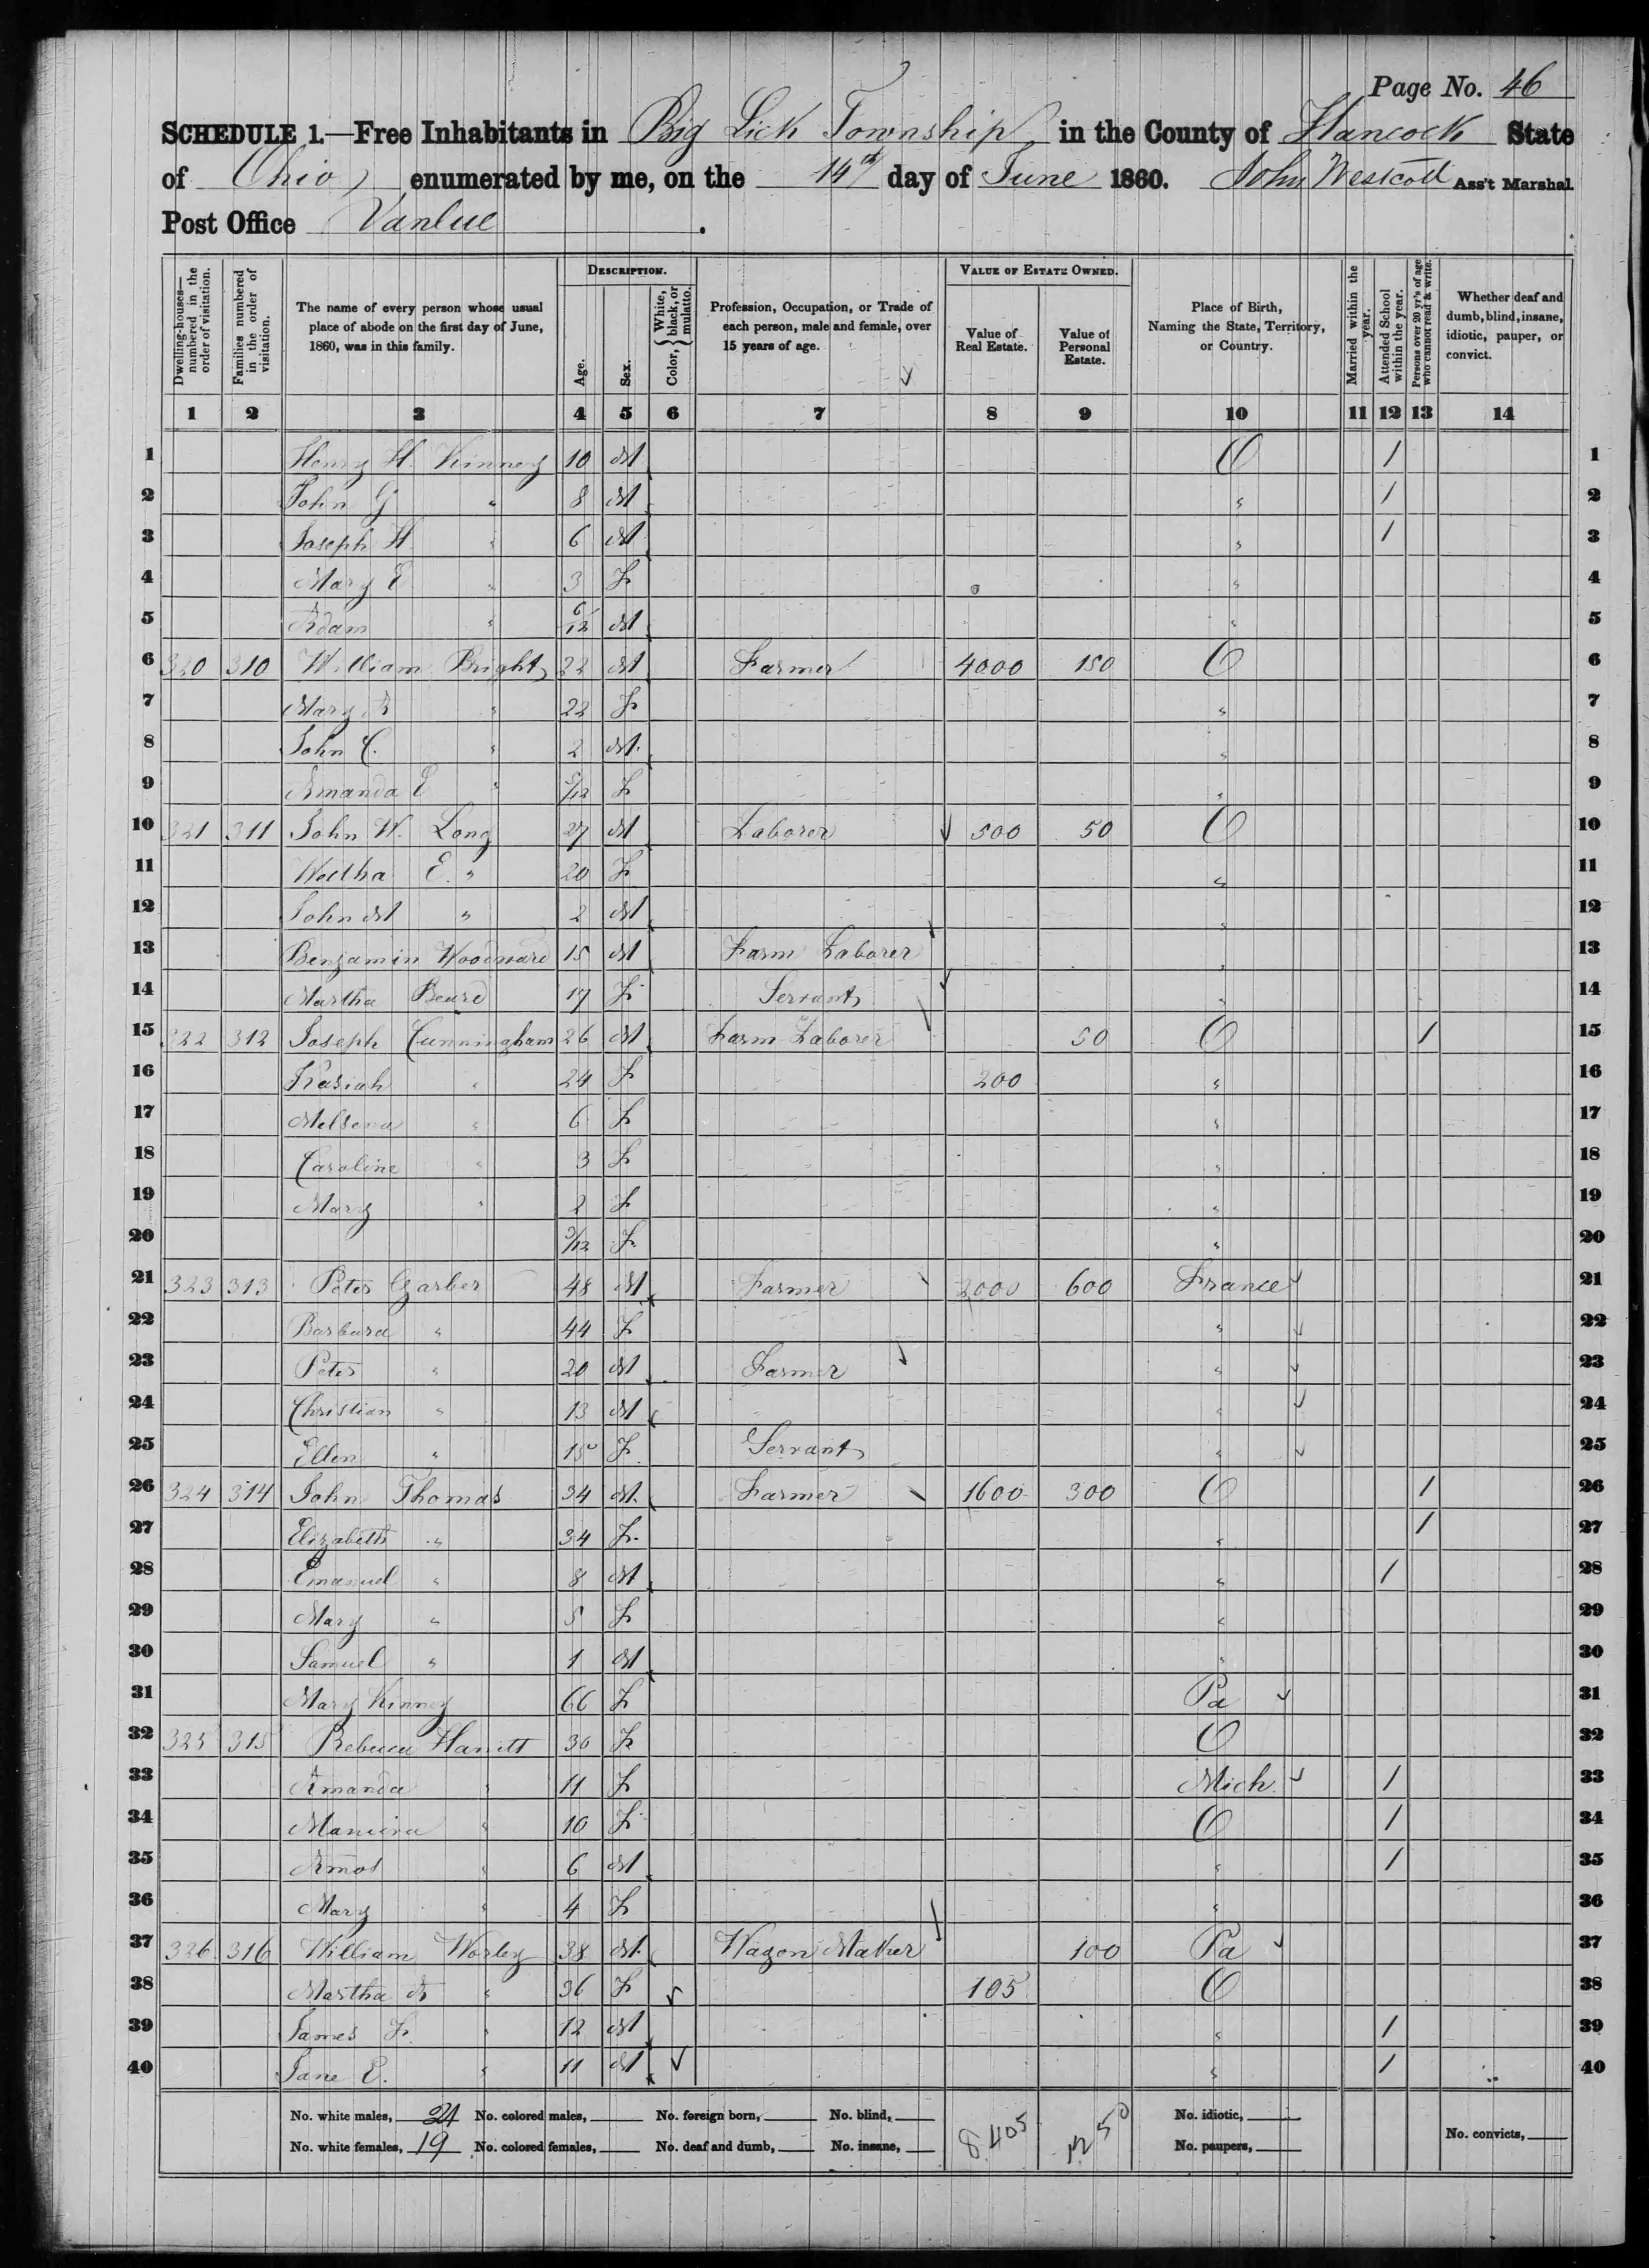 Page No. 46
SCHEDULE 1.—Free Inhabitants in Big Lick Township in the County of Hancock State
of Ohio enumerated by me, on the 14th day of June 1860. John Westcott Ass't Marshal
Post Office Vanlue .
Dwelling-houses—numbered in the order of visitation.
Families numbered in the order of visitation.
The name of every person whose usual place of abode on the first day of June, 1860, was in this family.
DESCRIPTION.
Age.
Sex.
Color, { White, black, or mulatto.
Profession, Occupation, or Trade of each person, male and female, over 15 years of age.
VALUE OF ESTATE OWNED.
Value of Real Estate.
Value of Personal Estate.
Place of Birth, Naming the State, Territory, or Country.
Married within the year.
Attended School within the year.
Persons over 20 yr's of age who cannot read & write.
Whether deaf and dumb, blind, insane, idiotic, pauper, or convict.
1 2 3 4 5 6 7 8 9 10 11 12 13 14
1 Henry H. Kinney 10 M O / 1
2 John G " 8 M " / 2
3 Joseph H. " 6 M " / 3
4 Mary E " 3 F " 4
5 Adam " 6/12 M " 5
6 320 310 William Bright 22 M Farmer 4000 150 O 6
7 Mary A " 22 F " 7
8 John C. " 2 M " 8
9 Amanda E " 5/12 F " 9
10 321 311 John W. Long 27 M Laborer 500 50 O 10
11 E. " 20 F " 11
12 John M " 2 M " 12
13 Benjamin Woodward 15 M Farm Laborer " 13
14 Martha Beard 17 F Servant " 14
15 322 312 Joseph Cunningham 26 M Farm Laborer 50 O / 15
16 Kasiah " 24 F 200 " 16
17 Melsena " 6 F " 17
18 Caroline " 3 F " 18
19 Mary " 2 F " 19
20 /12 F " 20
21 323 313 Peter Garber 48 M Farmer 2000 600 France 21
22 Barbara " 44 F " 22
23 Peter " 20 M Farmer " 23
24 Christian " 13 M " 24
25 Ellen " 15 F Servant " 25
26 324 314 John Thomas 34 M Farmer 1600 300 O / 26
27 Elizabeth " 34 F " / 27
28 Emanuel " 8 M " / 28
29 Mary " 5 F " 29
30 Samuel " 1 M " 30
31 Mary Kinney 66 F Pa 31
32 325 315 Rebecca 30 F O 32
33 Amanda " 11 F Mich. / 33
34 " 10 F O / 34
35 Amos " 6 M " / 35
36 Mary " 4 F " 36
37 326 316 William Worley 38 M Wagon Maker 100 Pa 37
38 Martha A " 36 F 105 O 38
39 James F. " 12 M " / 39
40 Jane E. " 11 M " / 40
No. white males, 21 No. colored males, No. foreign born, No. blind, 8,405 1250 No. idiotic,
No. white females, 19 No. colored females, No. deaf and dumb, No. insane, No. paupers, No. convicts,